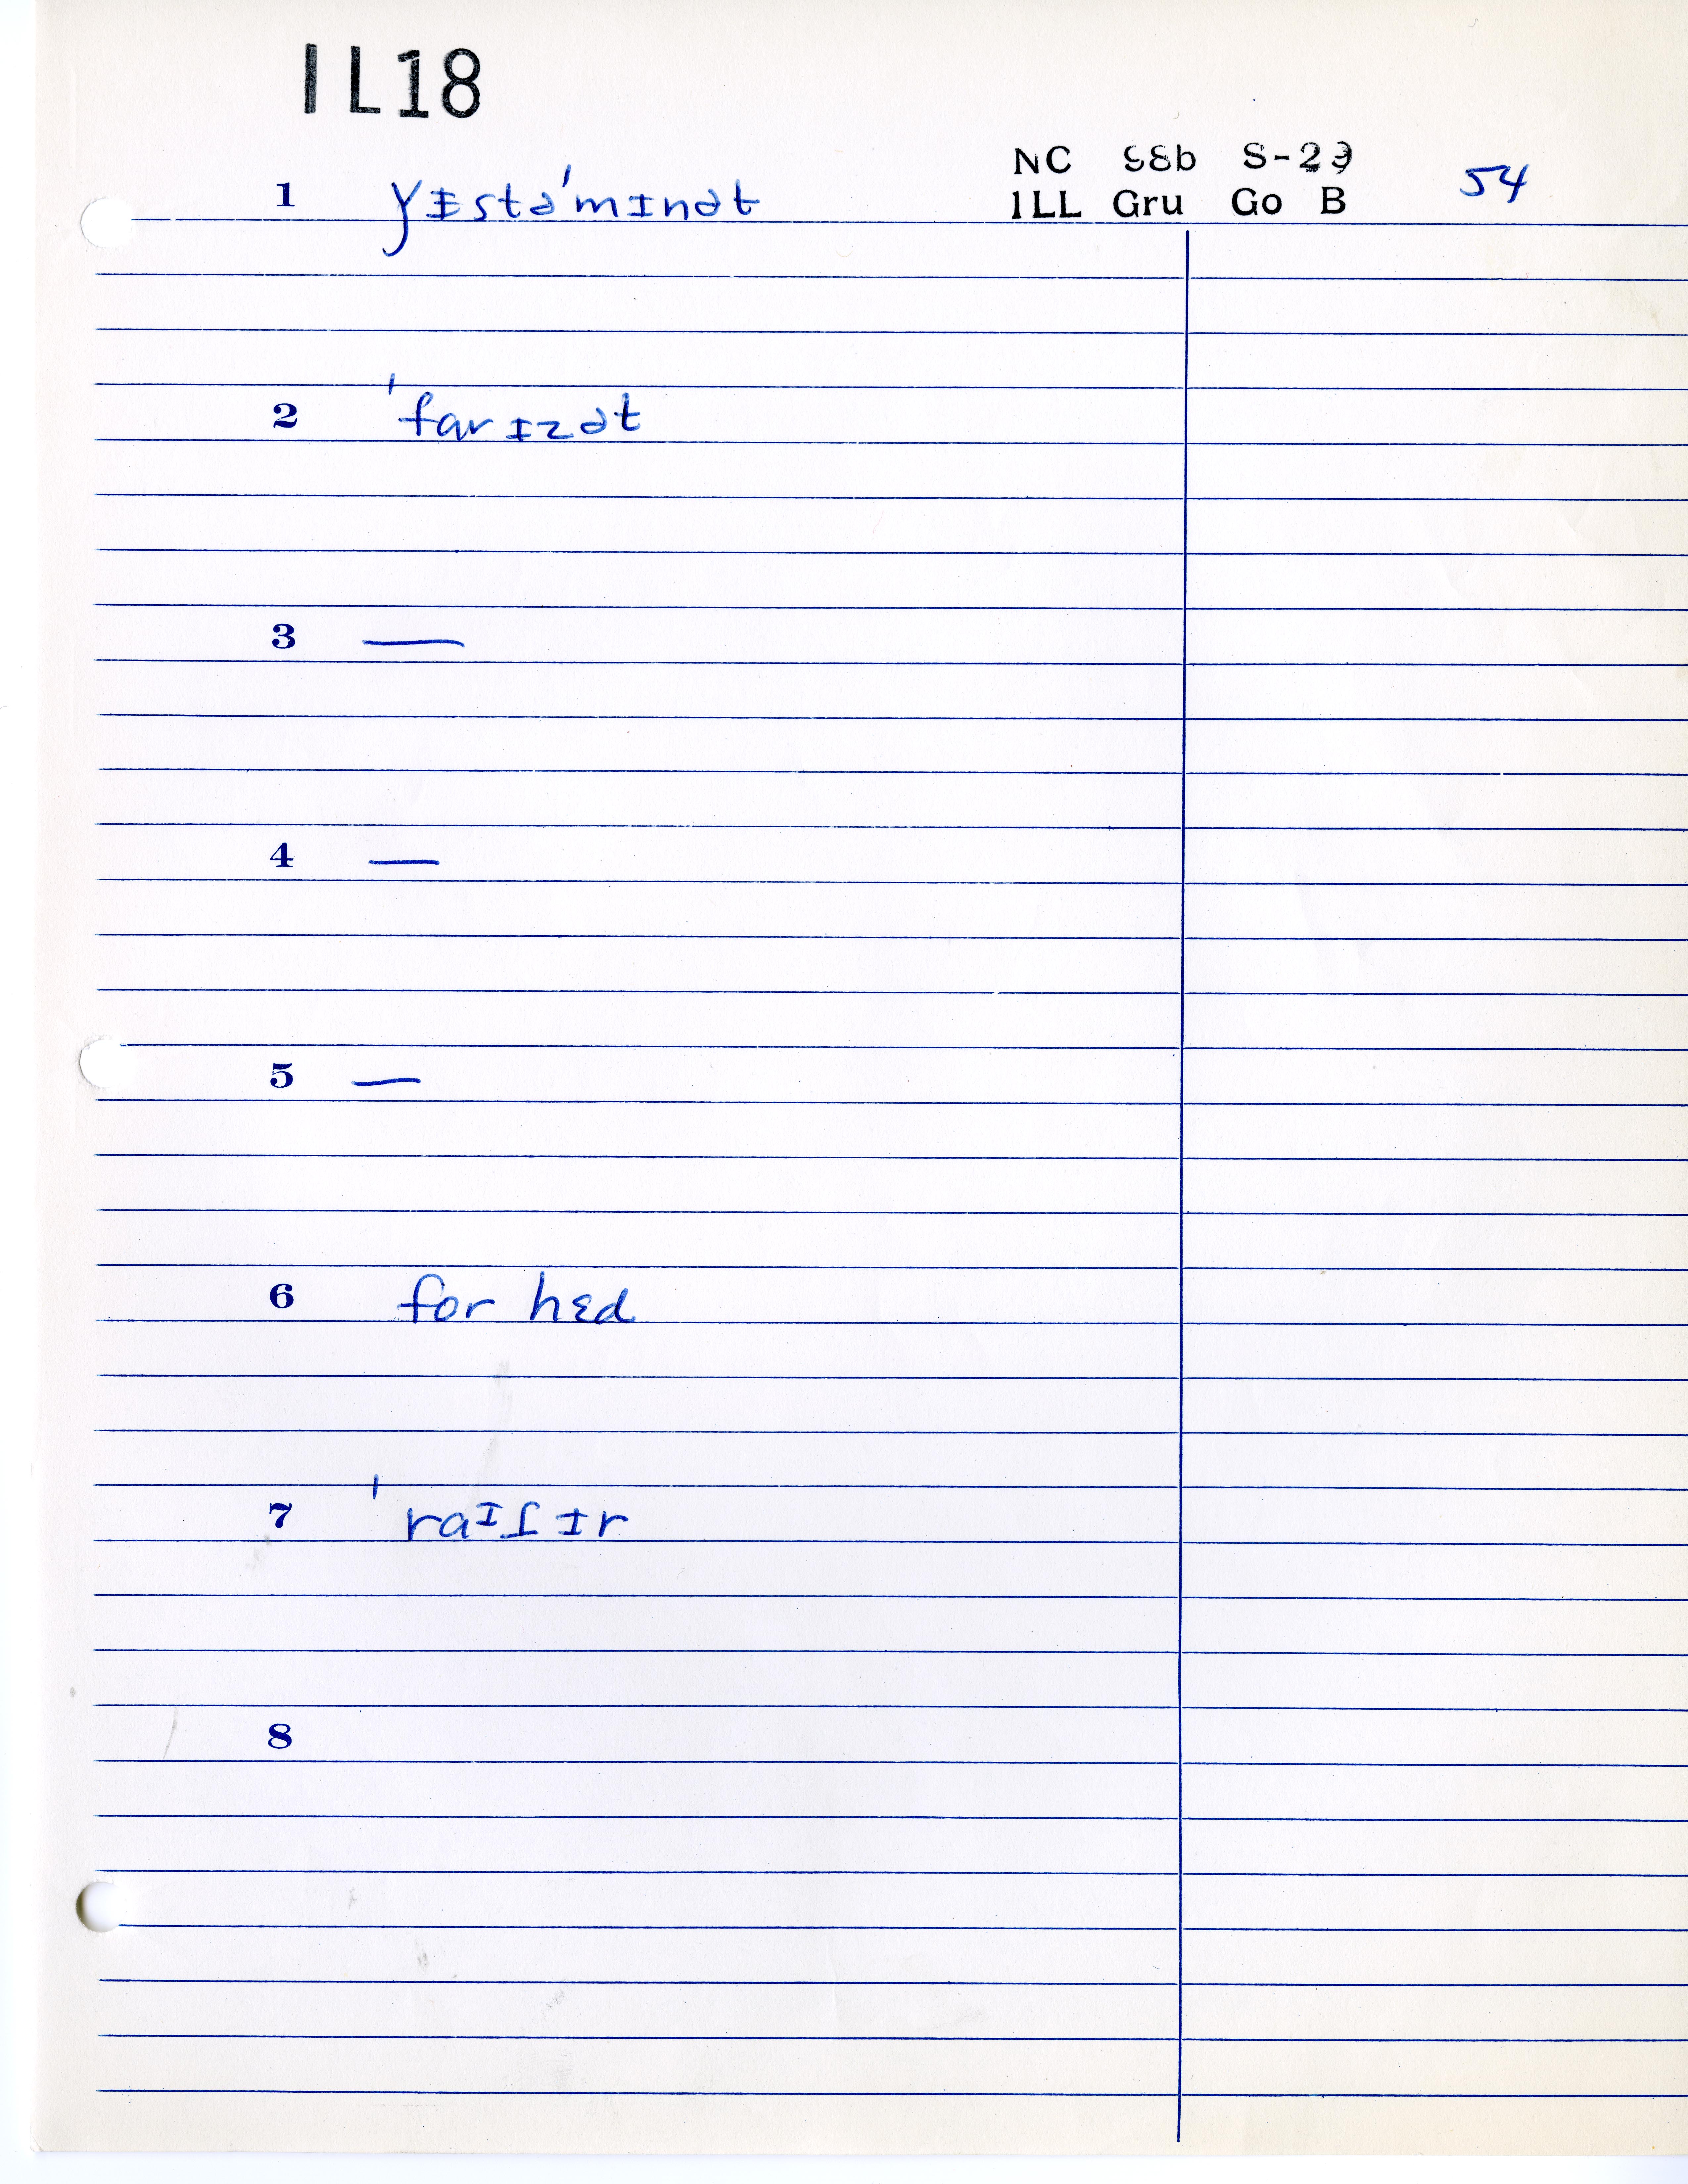 IL18
NC 98b S-29
1 yɪstə'mɪnət ILL Gru Go B 54
2 'farɪzət
3 —
4 —
5 —
6 for hɛd
7 'raɪʃɪr
8